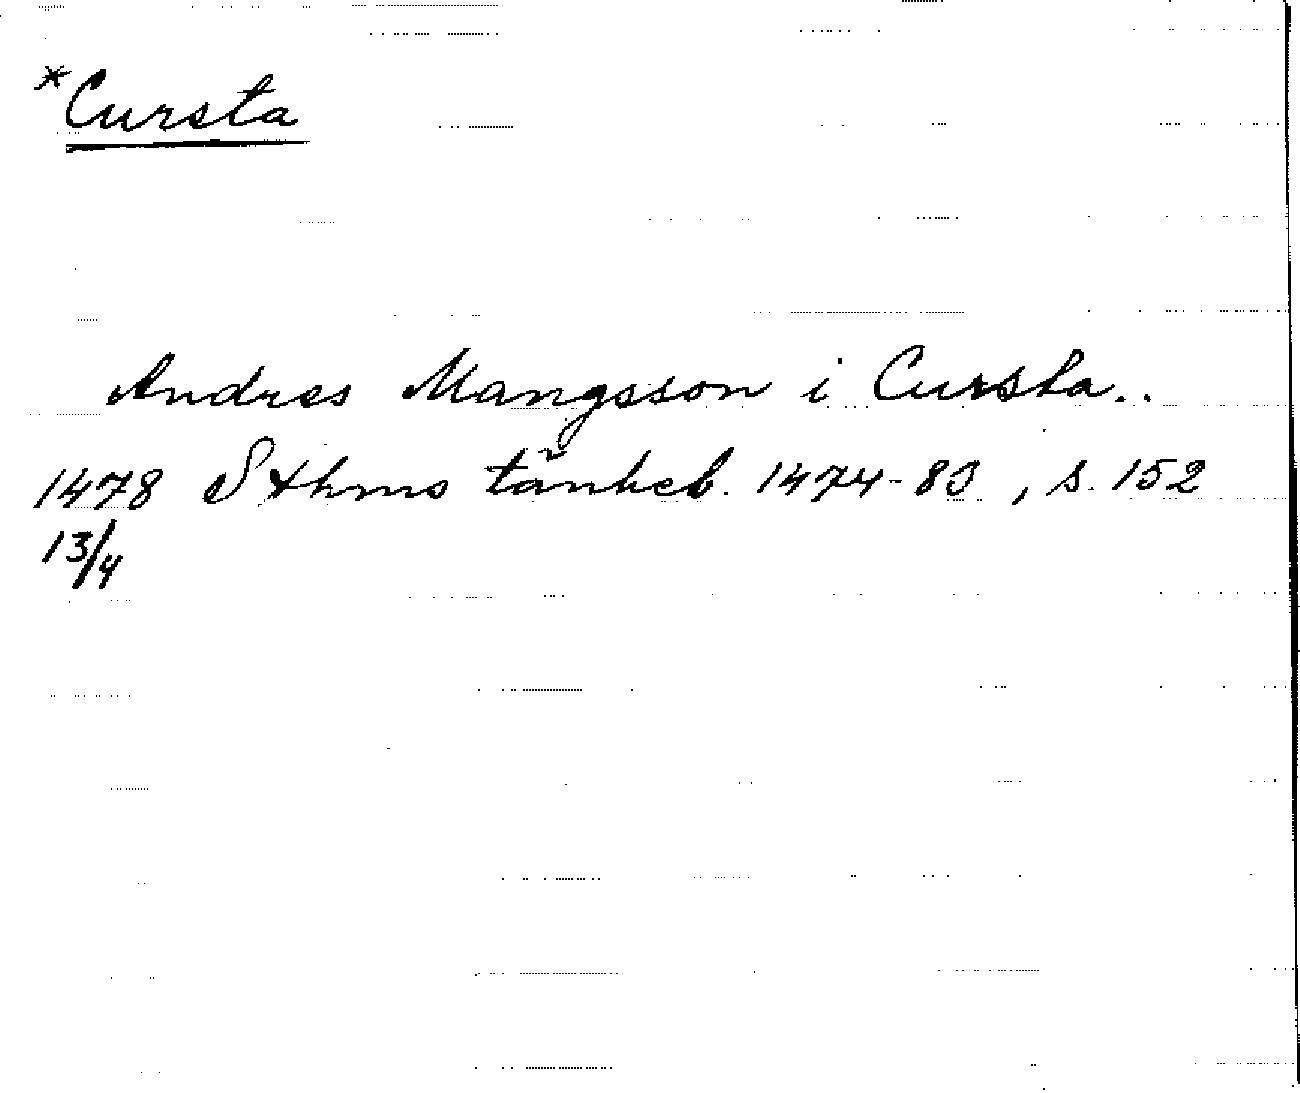 *Cursta
Andres Mangsson i Cursta..
1478 Sthms tänkeb. 1474-83, s. 152
13/4